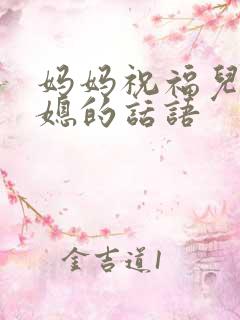 妈妈祝福兒
媳的話語
金吉道1